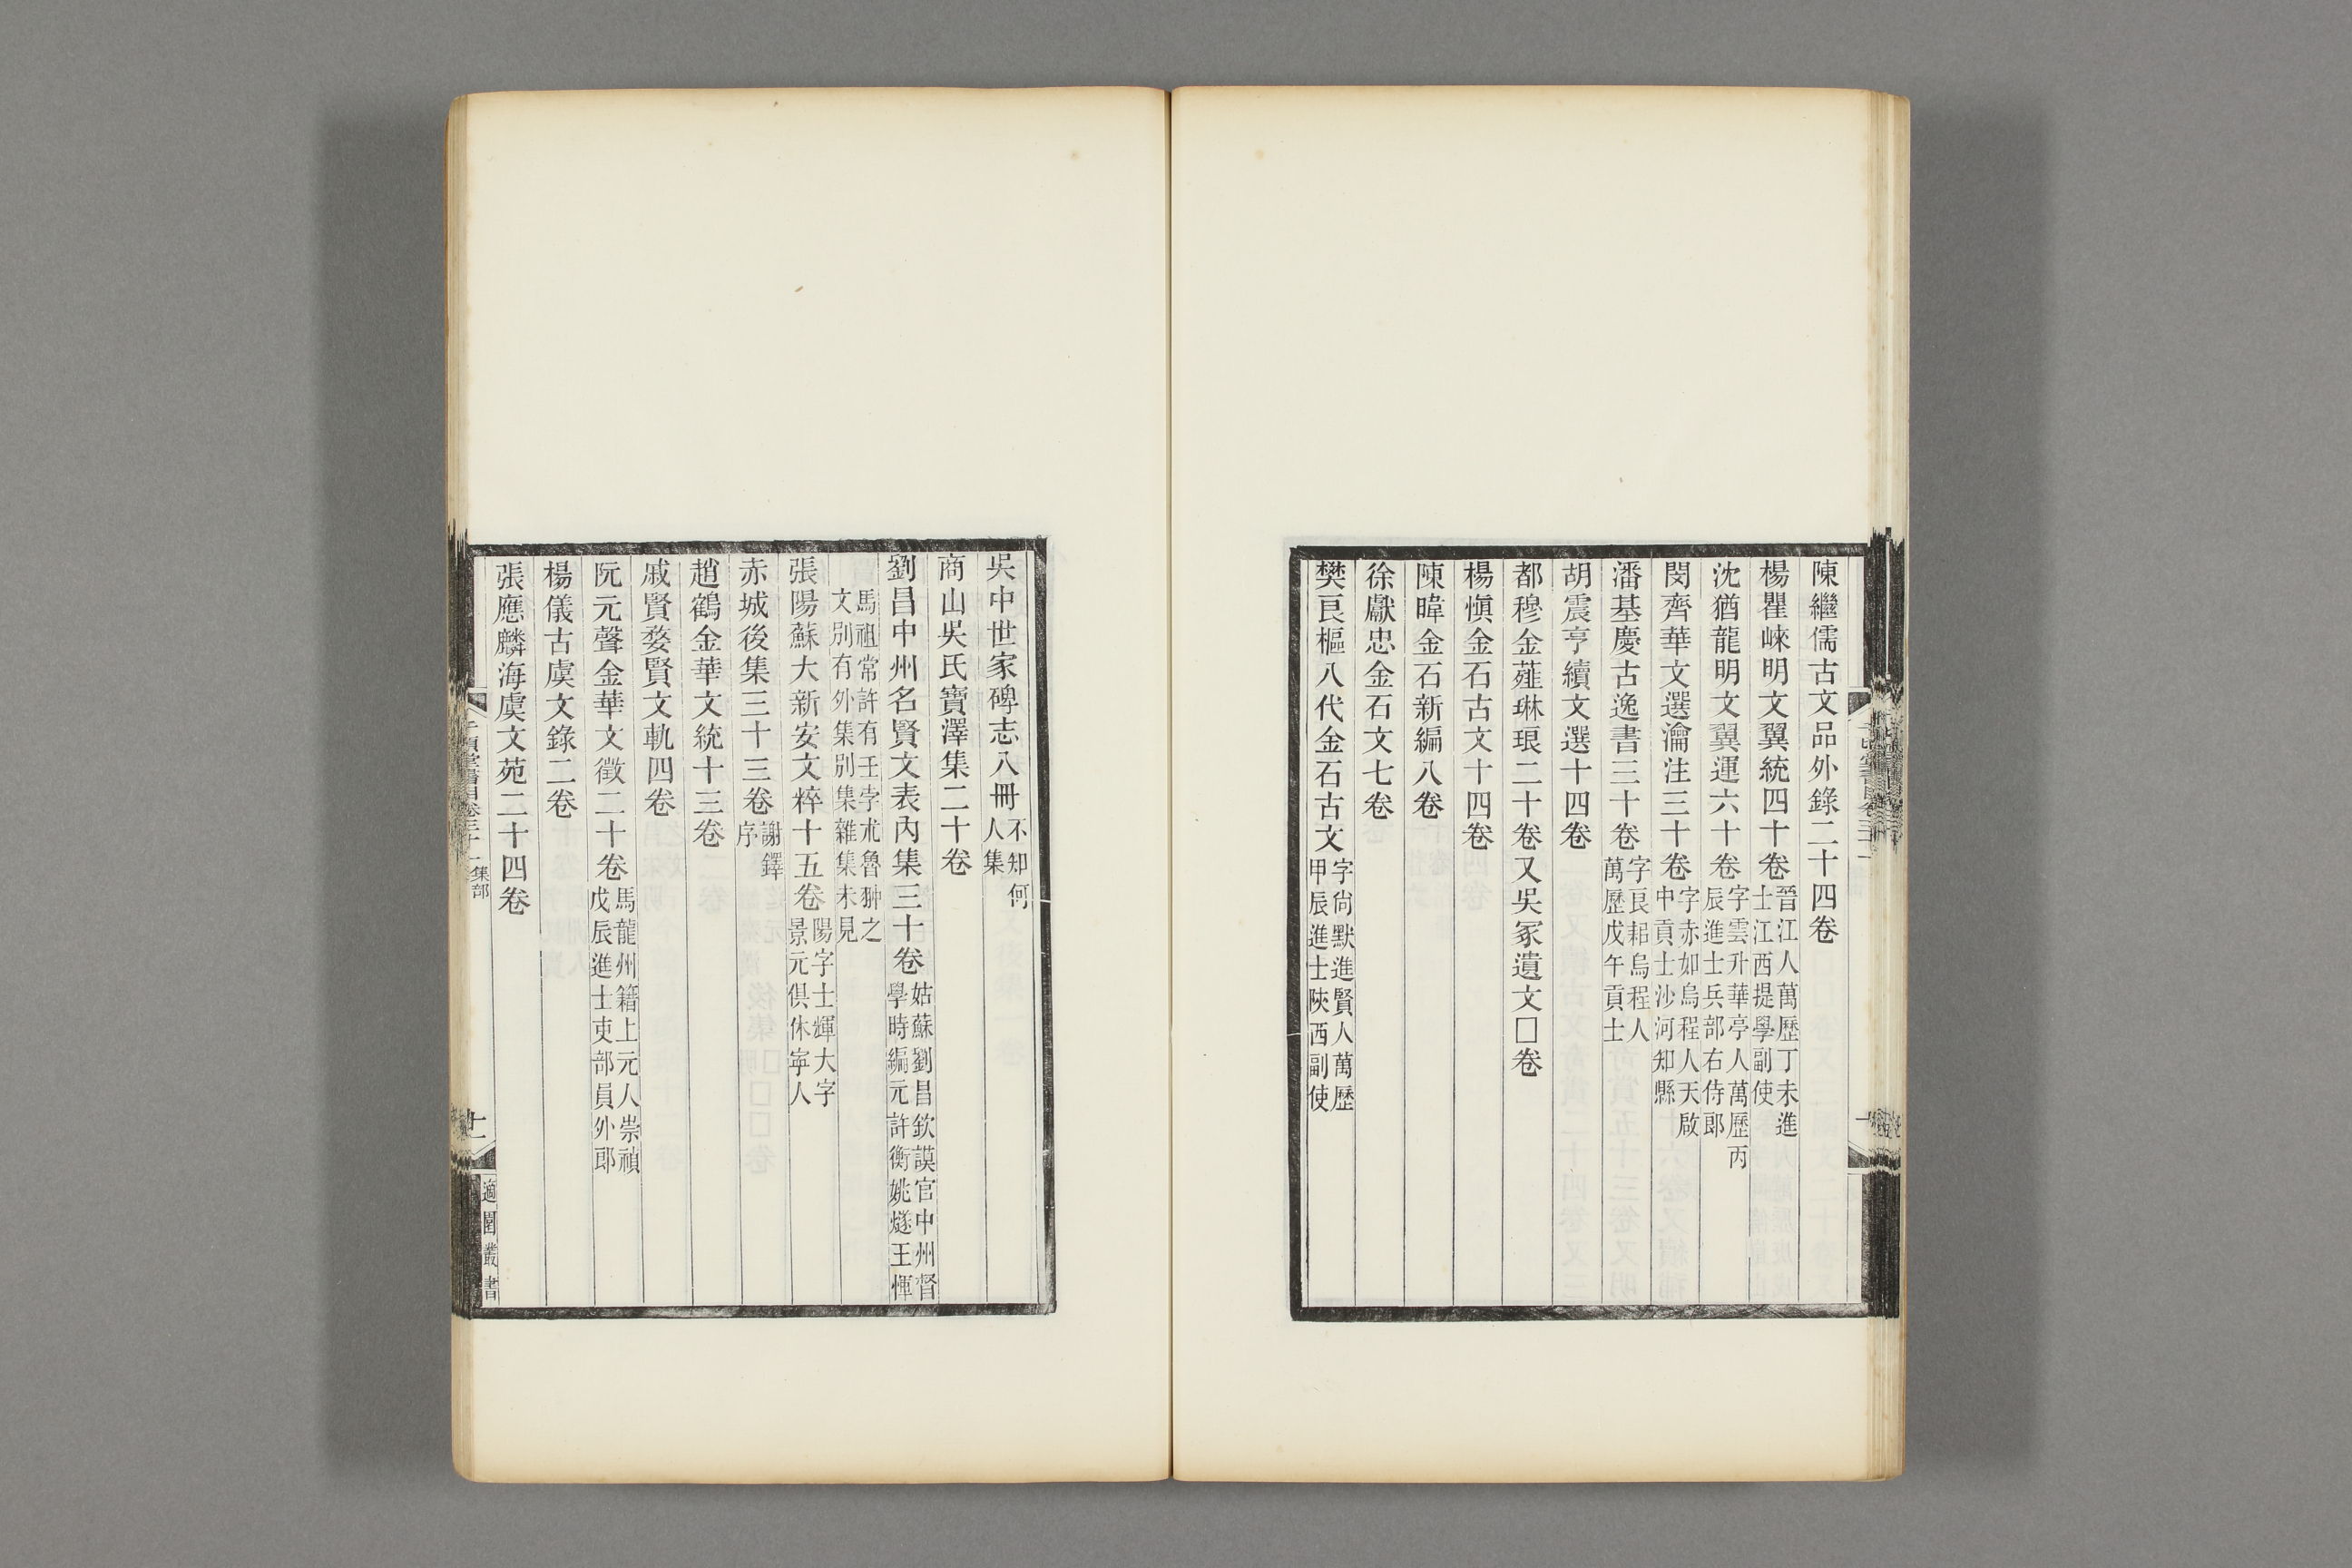 陳繼儒古文品外錄二十四卷
楊瞿崍明文翼統四十卷晉江人萬歷丁未進士江西提學副使
沈猶龍明文翼運六十卷字雲升華亭人萬歷丙辰進士兵部右侍郎
閔齊華文選瀹注三十卷字赤如烏程人天啟中貢士沙河知縣
潘基慶古逸書三十卷字良耜烏程人萬歷戊午貢士
胡震亨續文選十四卷
都穆金薤琳琅二十卷又吳冢遺文□卷
楊愼金石古文十四卷
陳暐金石新編八卷
徐獻忠金石文七卷
樊良樞八代金石古文字尙默進賢人萬歷甲辰進士陝西副使
吳中世家碑志八冊不知何人集
商山吳氏寶澤集二十卷
劉昌中州名賢文表內集三十卷姑蘇劉昌欽謨官中州督學時編元許衡姚燧王惲
馬祖常許有壬孛朮魯翀之文別有外集別集雜集未見
張陽蘇大新安文粹十五卷陽字士輝大字景元俱休寧人
赤城後集三十三卷謝鐸序
趙鶴金華文統十三卷
戚賢婺賢文軌四卷
阮元聲金華文徵二十卷馬龍州籍上元人崇禎戊辰進士吏部員外郎
楊儀古虞文錄二卷
張應麟海虞文苑二十四卷
千頃堂書目卷三十一 集部
十一
適園叢書